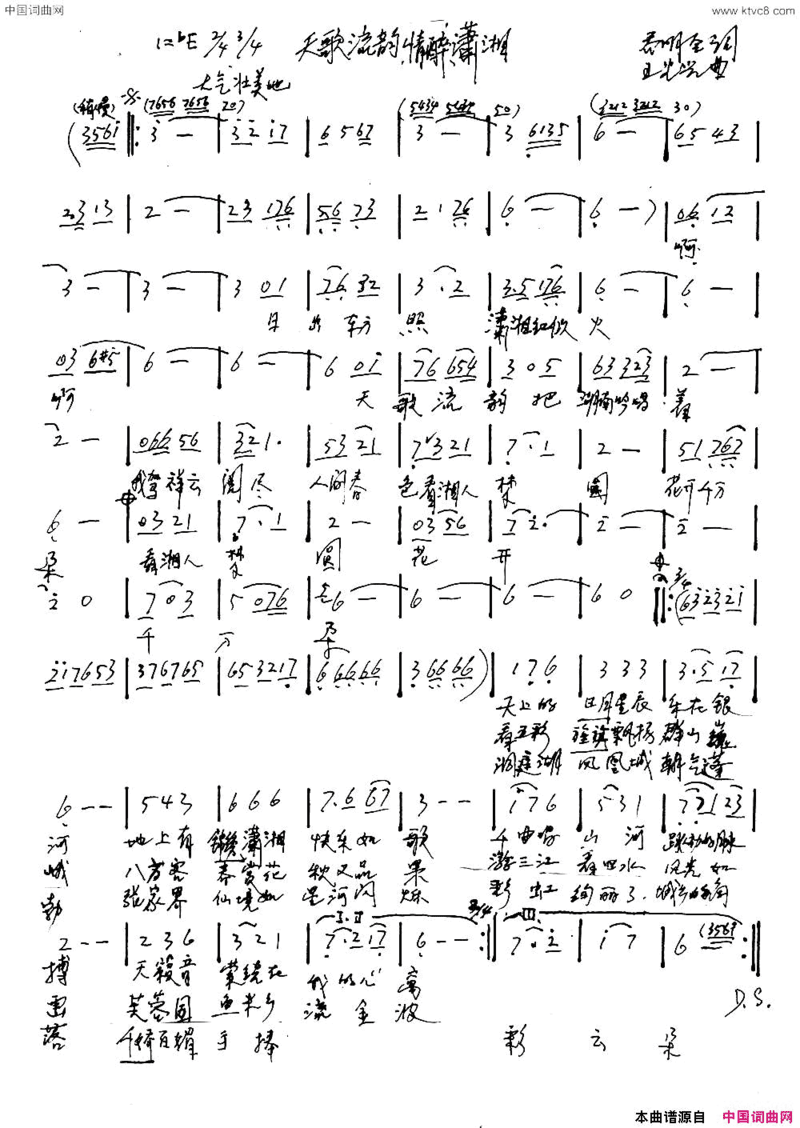 中国词曲网
www.ktvc8.com
1=bE 2/4 3/4 天歌流韵情醉潇湘
王 曲
大气壮美地
(稍慢) (7656 7656 20) (5434 5434 50) (3212 3212 30)
(3561 ‖: 3 — | 32 17 | 6 567 | 3 — | 3 6135 | 6 — | 65 43 |
2313 | 2 — | 23 176 | 56 723 | 2·176 | 6 — | 6 —) | 06 12 |
啊
3 — | 3 — | 3 01 | 76 32 | 3·2 | 3.5 176 | 6 — | 6 — |
日出东方 照 潇湘红似火
03 6#5 | 6 — | 6 — | 6 01 | 76 654 | 3 05 | 63 323 | 2 — |
啊 天歌流韵把湖南吟唱着
2 — | 066 56 | 321· | 53 21 | 7 321 | 7·1 | 2 — | 51 767 |
我驾祥云阅尽人间春色看湘人梦圆 花开千万
6 — | 03 21 | 7·1 | 2 — | 03 56 | 7 2· | 2 — | 2 — |
朵 看湘人梦圆 花开
2 0 | 7 03 | 5 076 | 6 — | 6 — | 6 — | 6 0 ‖: 3/4 (632321 |
千万朵
217653 | 376765 | 653217 | 6 66 66 | 3 66 66) | 1 7 6 | 3 3 3 | 3·5 17 |
天上的 日月星辰 车在银
看五彩 旌旗飘扬 群山巍
洞庭湖 凤凰城 朝气蓬
6 - - | 5 4 3 | 6 6 6 | 7.6 67 | 3 - - | 1 7 6 | 5 3 1 | 72 123 |
河 地上有 锦绣潇湘 快乐如歌 千曲 山河 跳动的脉
峨 八方客 春赏花 秋又品果 游三江 看四水 风光如
勃 张家界 仙境如 星河闪烁 彩虹 绚丽了 城乡的角
2 - - | 2 3 6 | 3 2 1 | 7·2 17 | 6 - - :‖ 7·2 | 1 7 | 6 (3561) ‖
I.II III 2/4
搏 天籁音 萦绕在 我的心窝
画 芙蓉国 鱼米乡 流金波
落 千娇百媚 手捧 彩云朵
D.S.
本曲谱源自 中国词曲网